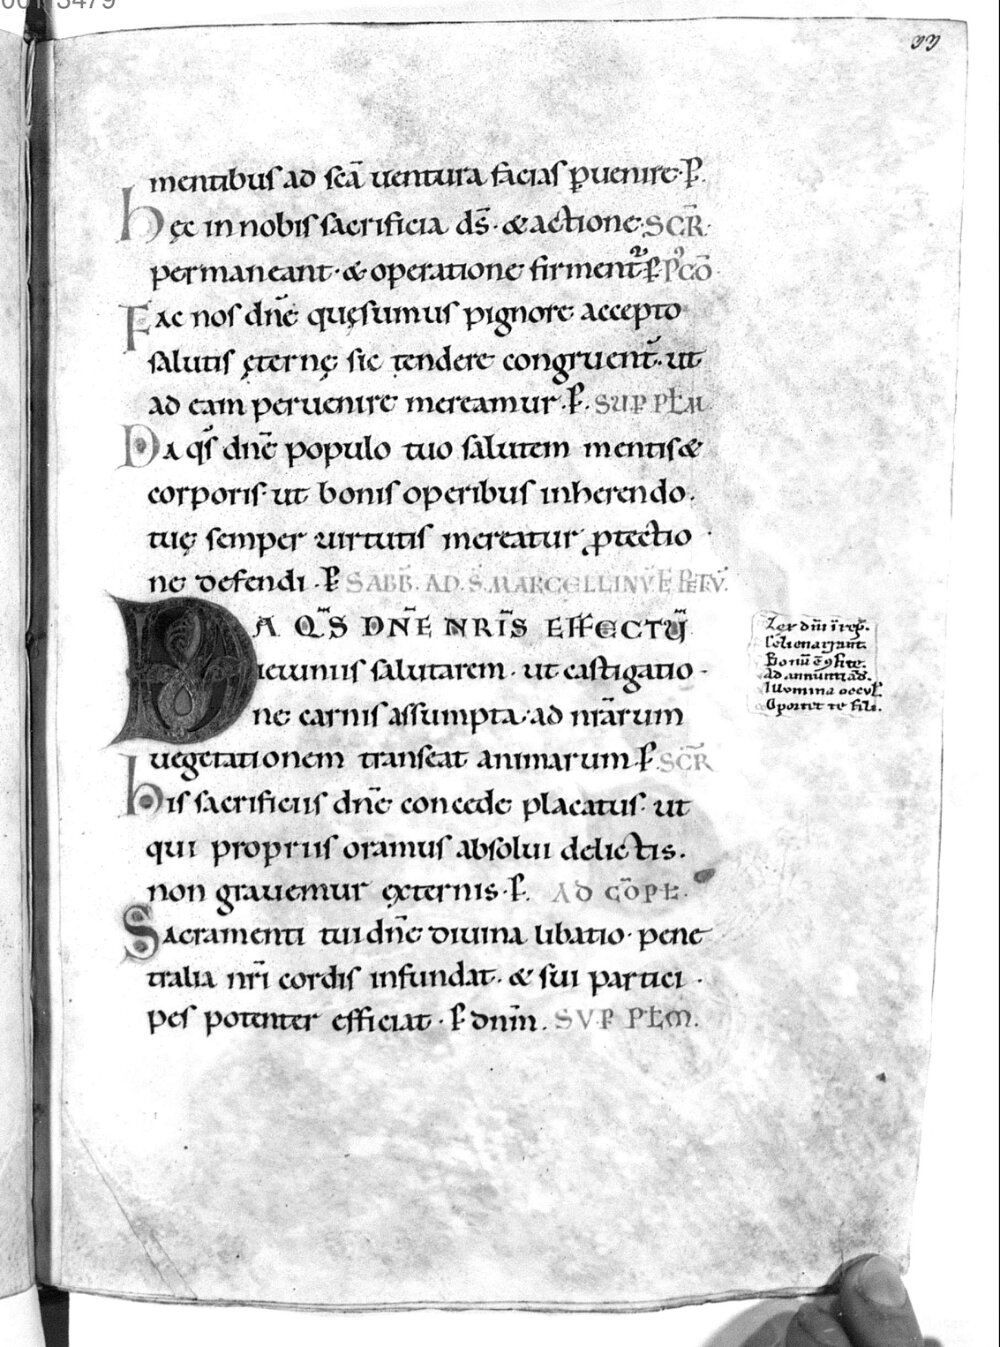 99
mentibus ad scā uentura facias ꝑuenire· ꝑ.
hęc in nobis sacrificia ds̄· & actione· SCR̄
permaneant· & operatione firment᷑ ꝑ PCŌ
Fac nos dn̄e quęsumus pignore accepto
salutis ęternę sic tendere congruent᷑. ut
ad eam peruenire mereamur. ꝑ. SUP PL̄M
Da qs̄ dn̄e populo tuo salutem mentis &
corporis· ut bonis operibus inherendo.
tuę semper uirtutis mereatur ꝓtectio
ne defendi. ꝑ SABB̄. AD. S̄. MARCELLINV̄ E PETV̄.
DA QS̄ DN̄E NRĪS EFFECTŪ
ieiuniis salutarem. ut castigatio
ne carnis assumpta· ad nrārum
uegetationem transeat animarum ꝑ SCR̄
his sacrificiis dn̄e concede placatus· ut
qui propriis oramus absolui delictis.
non grauemur externis· ꝑ. AD CŌPL̄.
Sacramenti tui dn̄e diuina libatio· pene
tralia nrī cordis infundat. & sui partici
pes potenter efficiat. ꝑ dnm̄. SVP PL̄M.
Bonū ē
ad annunciād.
Illumina ocul̄
Oportet te fili.